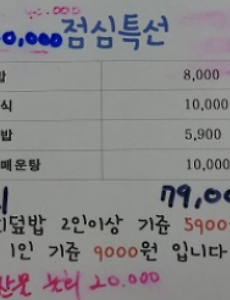 00.000
0,000 점심특선
밥 8,000
식 10,000
밥 5,900
매운탕 10,000
79,00
덮밥 2인이상 기준 5900
1인 기준 9000원 입니다
20.000